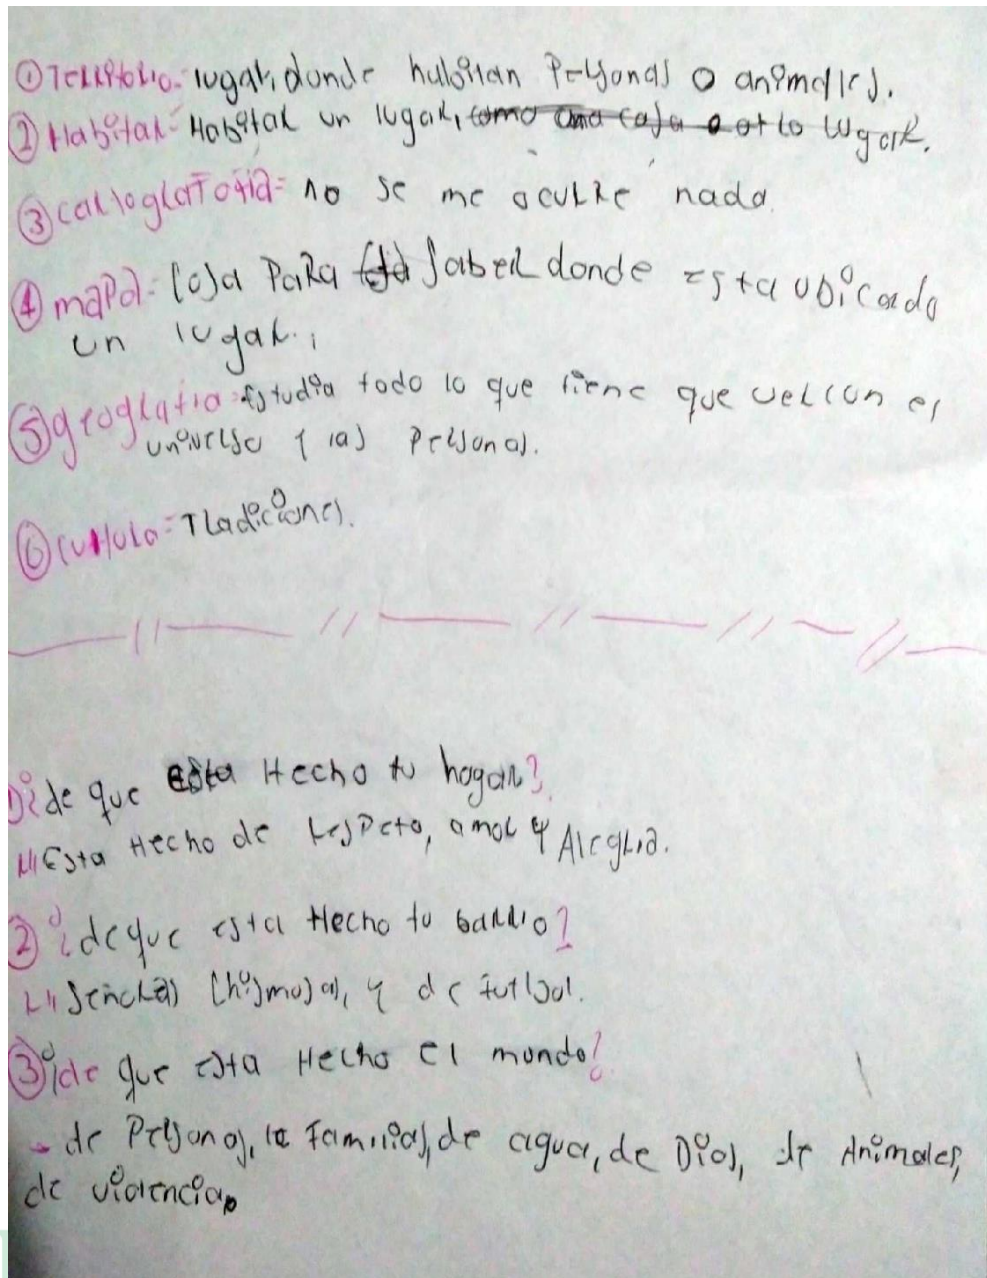 ① Territorio= lugar, donde habitan Personas o animales.
② Habitar= Habitar un lugar, como una casa o otro lugar.
③ cartografia= no se me ocurre nada
④ mapa= cosa Para saber donde esta ubicado
un lugar.
⑤ geografia= Estudia todo lo que tiene que ver con el
universo y las personas.
⑥ cultura= Tradiciones.
1) ¿de que esta Hecho tu hogar?
Esta Hecho de respeto, amor y Alegria.
2) ¿de que esta Hecho tu barrio?
Señoras chismosas, y de futbol.
③ ¿de que esta Hecho el mundo?
- de Personas, la familias, de agua, de Dios, de Animales,
de violencia.